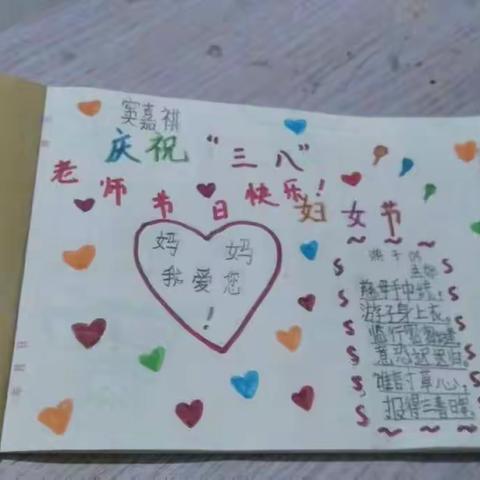 窦嘉祺
庆祝“三八”
妇女节
老师节日快乐！
妈妈
我爱您
！
游子
慈母手中线，
游子身上衣。
临行密密缝，
意恐迟迟归。
谁言寸草心，
报得三春晖。